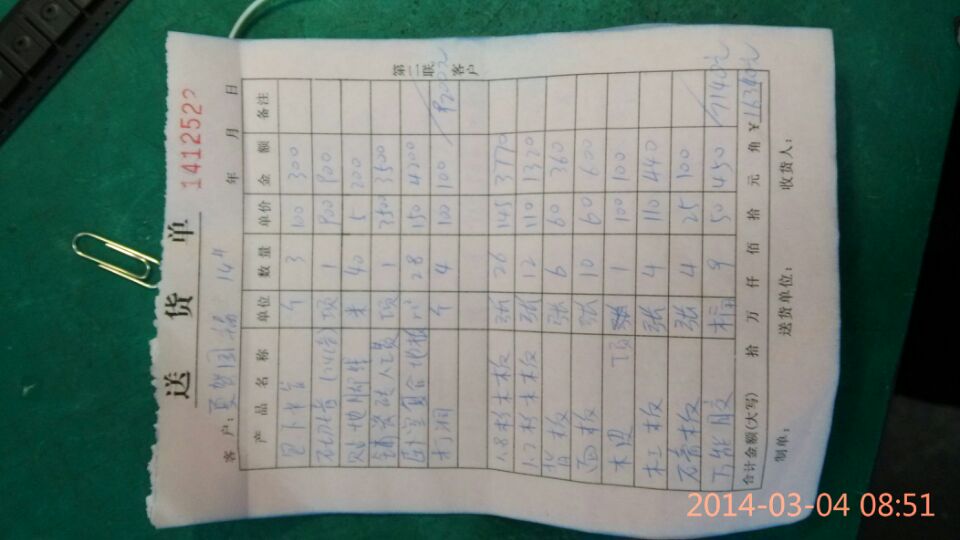 送 货 单 1412522
客户: 夏 国 年 月 日
产 品 名 称 单位 数 量 单价 金 额 备注
包下水管 个 3 100 300
项 1 900 900
地脚线 米 40 5 200
铺瓷砖人工费 项 1 3500 3500
卧室复合地板 m² 28 150 4200
打洞 个 4 100 100 9200元
1.8杉木板 张 26 145 3770
1.2杉木板 张 12 110 1320
背板 张 6 60 360
面板 张 10 60 600
木 项 1 100 100
板 张 4 110 440
石膏板 张 4 25 100
万能胶 桶 9 50 450 7140元
合计金额(大写) 拾 万 仟 佰 拾 元 角 ¥ 16340元
制单: 送货单位: 收货人:
第二联 客户
2014-03-04 08:51